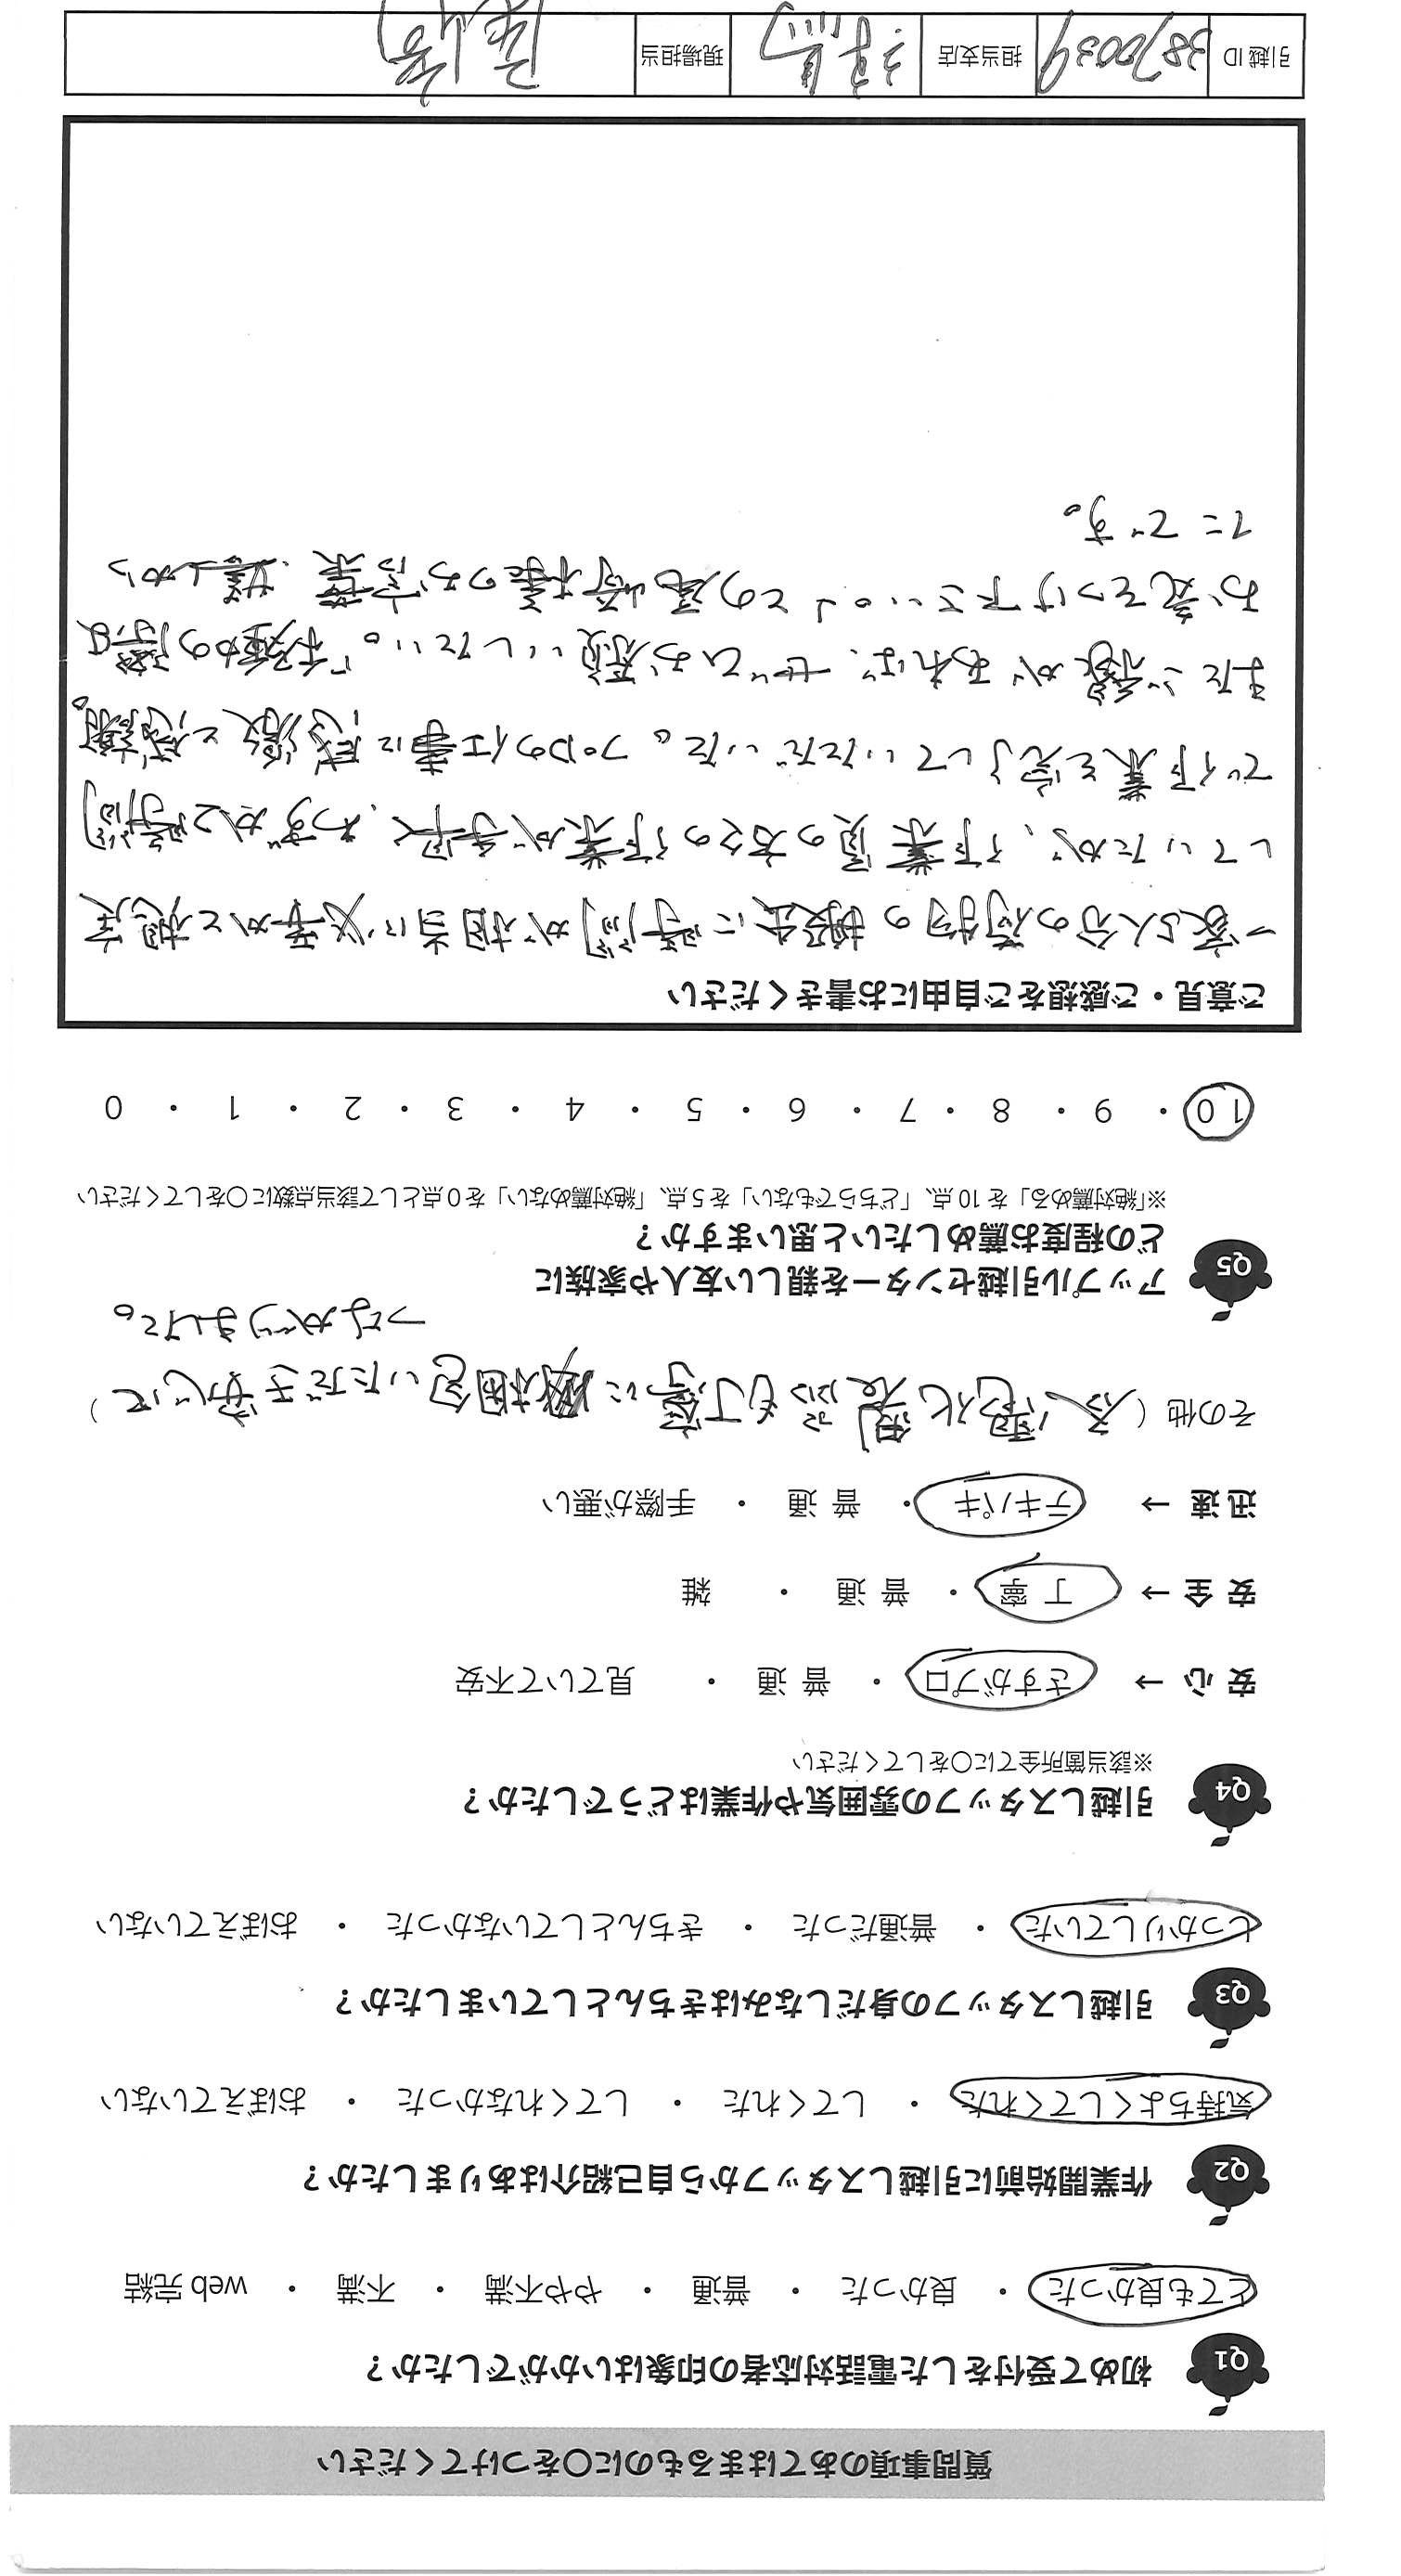 質問事項のあてはまるものに○をつけてください
Q1 初めて受付をした電話対応者の印象はいかがでしたか？
とても良かった ・ 良かった ・ 普通 ・ やや不満 ・ 不満 ・ web 完結
Q2 作業開始前に引越しスタッフから自己紹介はありましたか？
気持ちよくしてくれた ・ してくれた ・ してくれなかった ・ おぼえていない
Q3 引越しスタッフの身だしなみはきちんとしていましたか？
しっかりしていた ・ 普通だった ・ きちんとしていなかった ・ おぼえていない
Q4 引越しスタッフの雰囲気や作業はどうでしたか？
※該当箇所全てに○をしてください
安 心 → さすがプロ ・ 普 通 ・ 見ていて不安
安 全 → 丁 寧 ・ 普 通 ・ 雑
迅 速 → テキパキ ・ 普 通 ・ 手際が悪い
その他（ 電化製品も丁寧に梱包いただき安心に ）
つながりました。
Q5 アップル引越センターを親しい友人や家族に
どの程度お薦めしたいと思いますか？
※「絶対薦める」を 10 点、「どちらでもない」を 5 点、「絶対薦めない」を 0 点として該当点数に○をしてください
10 ・ 9 ・ 8 ・ 7 ・ 6 ・ 5 ・ 4 ・ 3 ・ 2 ・ 1 ・ 0
ご意見・ご感想をご自由にお書きください
一家5人分の荷物の搬出に時間が相当必要かと想定
していたが、作業員の方々の作業が手早く、わずか2時間
で作業を完了していただいた。プロの仕事に感激と感謝。
またご縁があれば、ぜひお願いしたい。「移動の際は
お気をつけ下さい。」との尾崎様のお言葉、嬉しかっ
たです。
引越 ID 3870039 担当支店 練馬 現場担当 尾崎